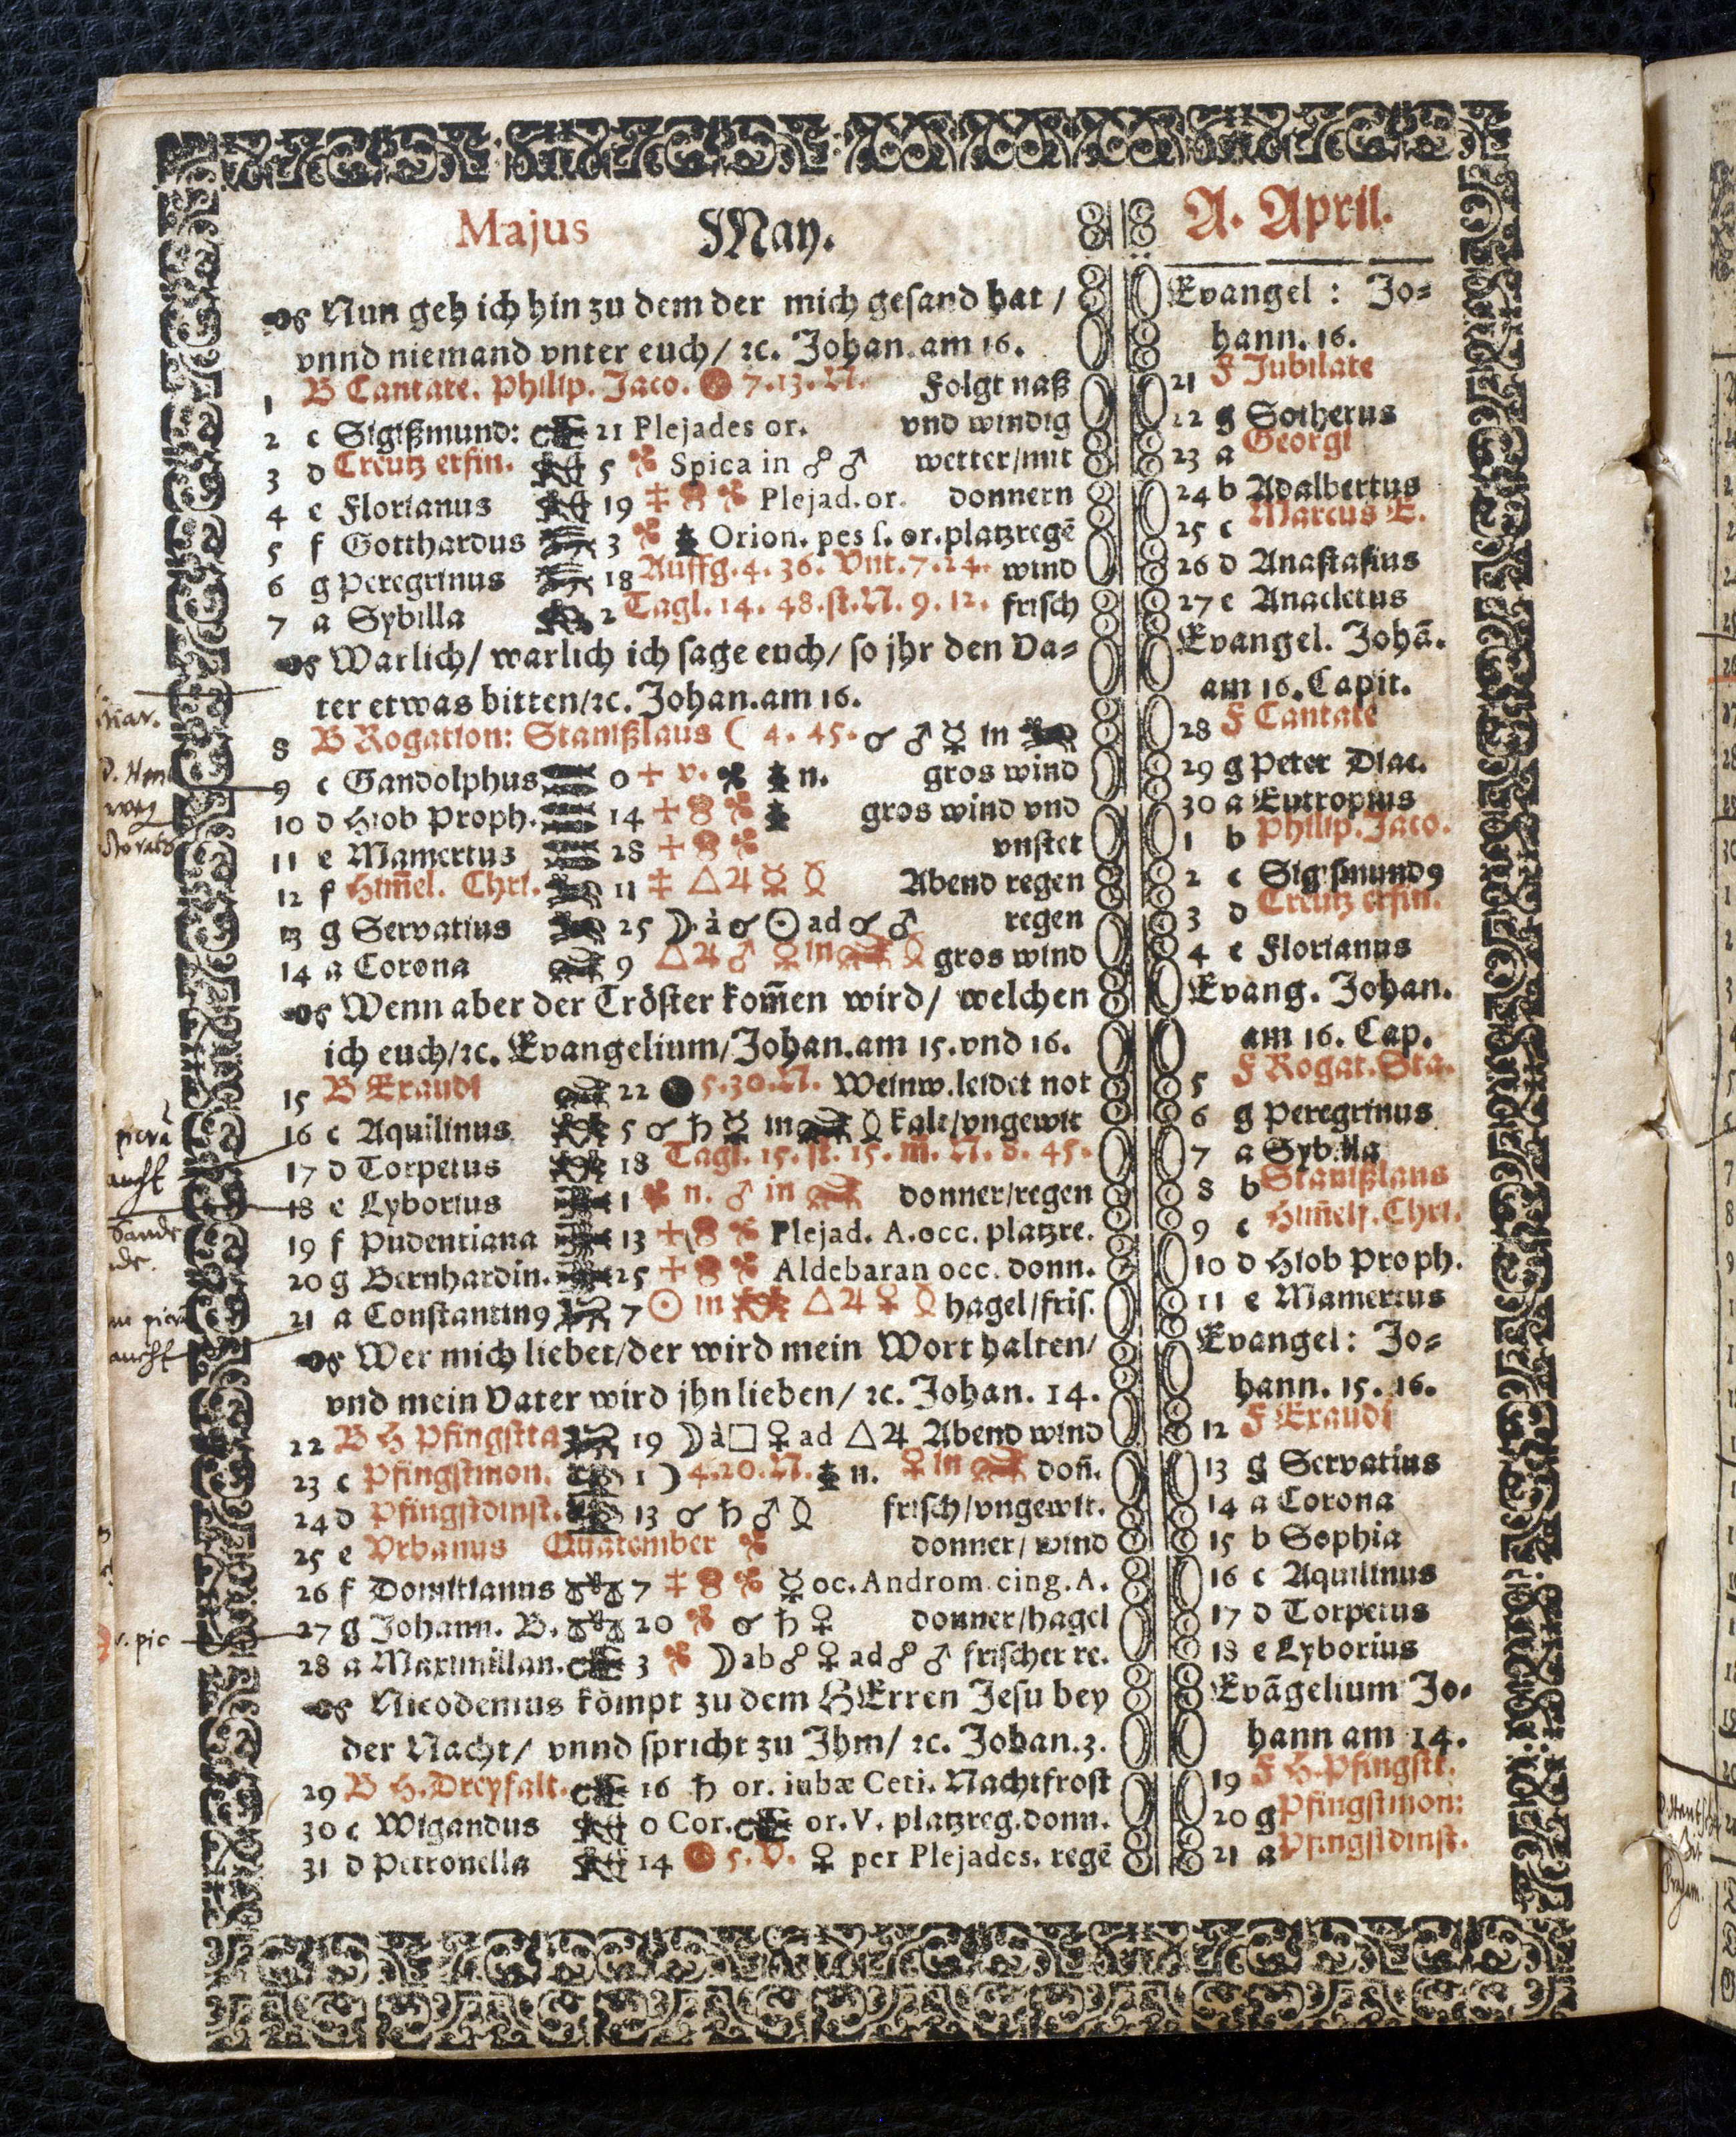 Majus May.
Nun geh ich hin zu dem der mich gesand hat /
vnnd niemand vnter euch / ꝛc. Johan. am 16.
1 B Cantate. Philip. Jaco. 7. 13. N. Folgt naß
2 c Sigißmund: 21 Plejades or. vnd windig
3 d Creutz erfin. 5 Spica in ☍ ♂ wetter/mit
4 e Florianus 19 Plejad. or. donnern
5 f Gotthardus 3 Orion. pes s. or. platzregē
6 g Peregrinus 18 Auffg. 4. 36. Vnt. 7. 24. wind
7 a Sybilla 2 Tagl. 14. 48. st. N. 9. 12. frisch
Warlich / warlich ich sage euch / so jhr den Va=
ter etwas bitten / ꝛc. Johan. am 16.
8 B Rogation: Stanißlaus ( 4. 45. ☌ ♂ ☿ in
9 c Gandolphus 0 + v. n. gros wind
10 d Hiob Proph. 14 + gros wind vnd
11 e Mamertus 28 + vnstet
12 f Him̄el. Chri. 11 ‡ △ ♃ ☿ Abend regen
13 g Servatius 25 ☽ à ☌ ☉ ad ☌ ♂ regen
14 a Corona 9 △ ♃ ♂ ♀ in gros wind
Wenn aber der Tröster kom̄en wird / welchen
ich euch / ꝛc. Evangelium / Johan. am 15. vnd 16.
15 B Exaudi 22 5. 30. N. Weinw. leidet not
16 c Aquilinus 5 ☌ ♄ ☿ in kalt/vngewit
17 d Torpetus 18 Tagl. 15. st. 15. m. N. 8. 45.
18 e Lyborius 1 n. ♂ in donner/regen
19 f Pudentiana 13 + Plejad. A. occ. platzre.
20 g Bernhardin. 25 + Aldebaran occ. donn.
21 a Constantin9 7 ☉ in △ ♃ ♀ hagel/fris.
Wer mich liebet / der wird mein Wort halten /
vnd mein Vater wird jhn lieben / ꝛc. Johan. 14.
22 B H Pfingstta 19 ☽ à □ ♀ ad △ ♃ Abend wind
23 c Pfingstmon. 1 ) 4. 20. N. n. ♀ in don̄.
24 d Pfingstdinst. 13 ☌ ♄ ♂ frisch/vngewit.
25 e Vrbanus Quatember donner / wind
26 f Domitianus 7 ‡ ☿ oc. Androm. cing. A.
27 g Johann. B. 20 ☌ ♄ ♀ donner/hagel
28 a Maximilian. 3 ☽ ab ☍ ♀ ad ☍ ♂ frischer re.
Nicodemus kömpt zu dem HErren Jesu bey
der Nacht / vnnd spricht zu Ihm / ꝛc. Johan. 3.
29 B H. Dreyfalt. 16 ♄ or. iubæ Ceti. Nachtfrost
30 c Wigandus 0 Cor. or. V. platzreg. donn.
31 d Petronella 14 5. V. ♀ per Plejades. regē
A. April.
Evangel: Jo=
hann. 16.
21 F Jubilate
22 g Sotherus
23 a Georgi
24 b Adalbertus
25 c Marcus E.
26 d Anastasius
27 e Anacletus
Evangel. Johā.
am 16. Capit.
28 F Cantate
29 g Peter Diac.
30 a Eutropius
1 b Philip. Jaco.
2 c Sigismund9
3 d Creutz erfin.
4 e Florianus
Evang. Johan.
am 16. Cap.
5 F Rogat. Sta.
6 g Peregrinus
7 a Sybilla
8 b Stanißlaus
9 c Him̄elf. Chri.
10 d Hiob Proph.
11 e Mamertus
Evangel: Jo=
hann. 15. 16.
12 F Exaudi
13 g Servatius
14 a Corona
15 b Sophia
16 c Aquilinus
17 d Torpetus
18 e Lyborius
Evāgelium Jo=
hann am 14.
19 F H. Pfingstt.
20 g Pfingstmon:
21 a Pfingstdinst.